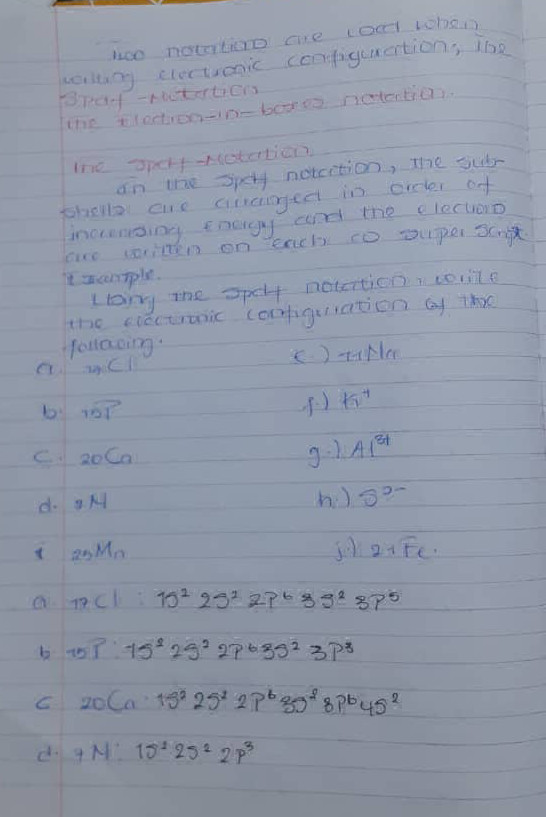 Two notations are used when
writing electronic configurations, The
Spdf-Notation
the Electron-in-boxes notation.
The Spdf-Notation
In the Spdf notation, the sub-
shells are arranged in order of
increasing Energy and the electrons
are written on each as super script
Example.
Using the spdf notation, write
the electronic configuration of the
following.
a. 17Cl e.) 11Na
b. 15P f.) K⁺
c. 20Ca g.) Al³⁺
d. N h.) S²⁻
i 25Mn j.) Fe.
a 17Cl : 1S² 2S² 2P⁶ 3S² 3P⁵
b 15P: 1S² 2S² 2P⁶ 3S² 3P³
c 20Ca: 1S² 2S² 2P⁶ 3S² 3P⁶ 4S²
d. N: 1S² 2S² 2P³